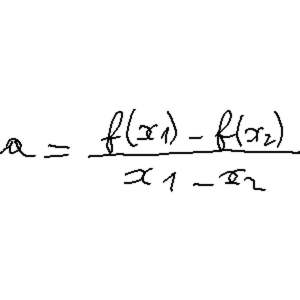 a = \frac{f(x_1) - f(x_2)}{x_1 - x_2}